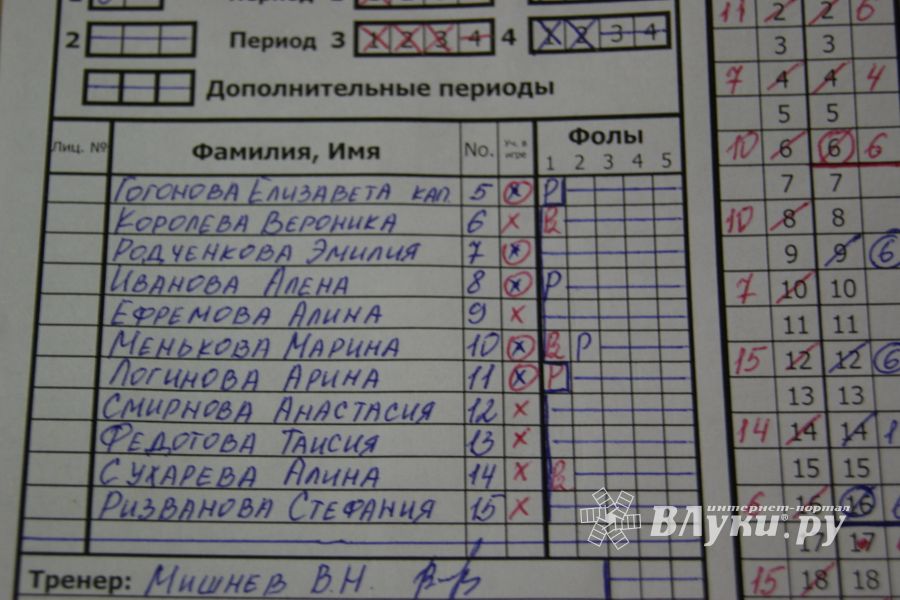 2 Период 3 1 2 3 4 4 1 2 3 4
Дополнительные периоды
Лиц. № Фамилия, Имя No. Уч. в игре Фолы
1 2 3 4 5
Гогонова Елизавета кап. 5 x P
Королева Вероника 6 x
Родченкова Эмилия 7 x
Иванова Алена 8 x P
Ефремова Алина 9 x
Менькова Марина 10 x P
Логинова Арина 11 x P
Смирнова Анастасия 12 x
Федотова Таисия 13 x
Сухарева Алина 14 x
Ризванова Стефания 15 x
Тренер: Мишнев В.Н.
11 2 2 6
3 3
7 4 4 4
5 5
10 6 6 6
7 7
10 8 8
9 9 6
7 10 10
11 11
15 12 12 6
13 13
14 14 14 1
15 15
6 16 16
17 17
15 18 18
интернет-портал
ВЛуки.ру